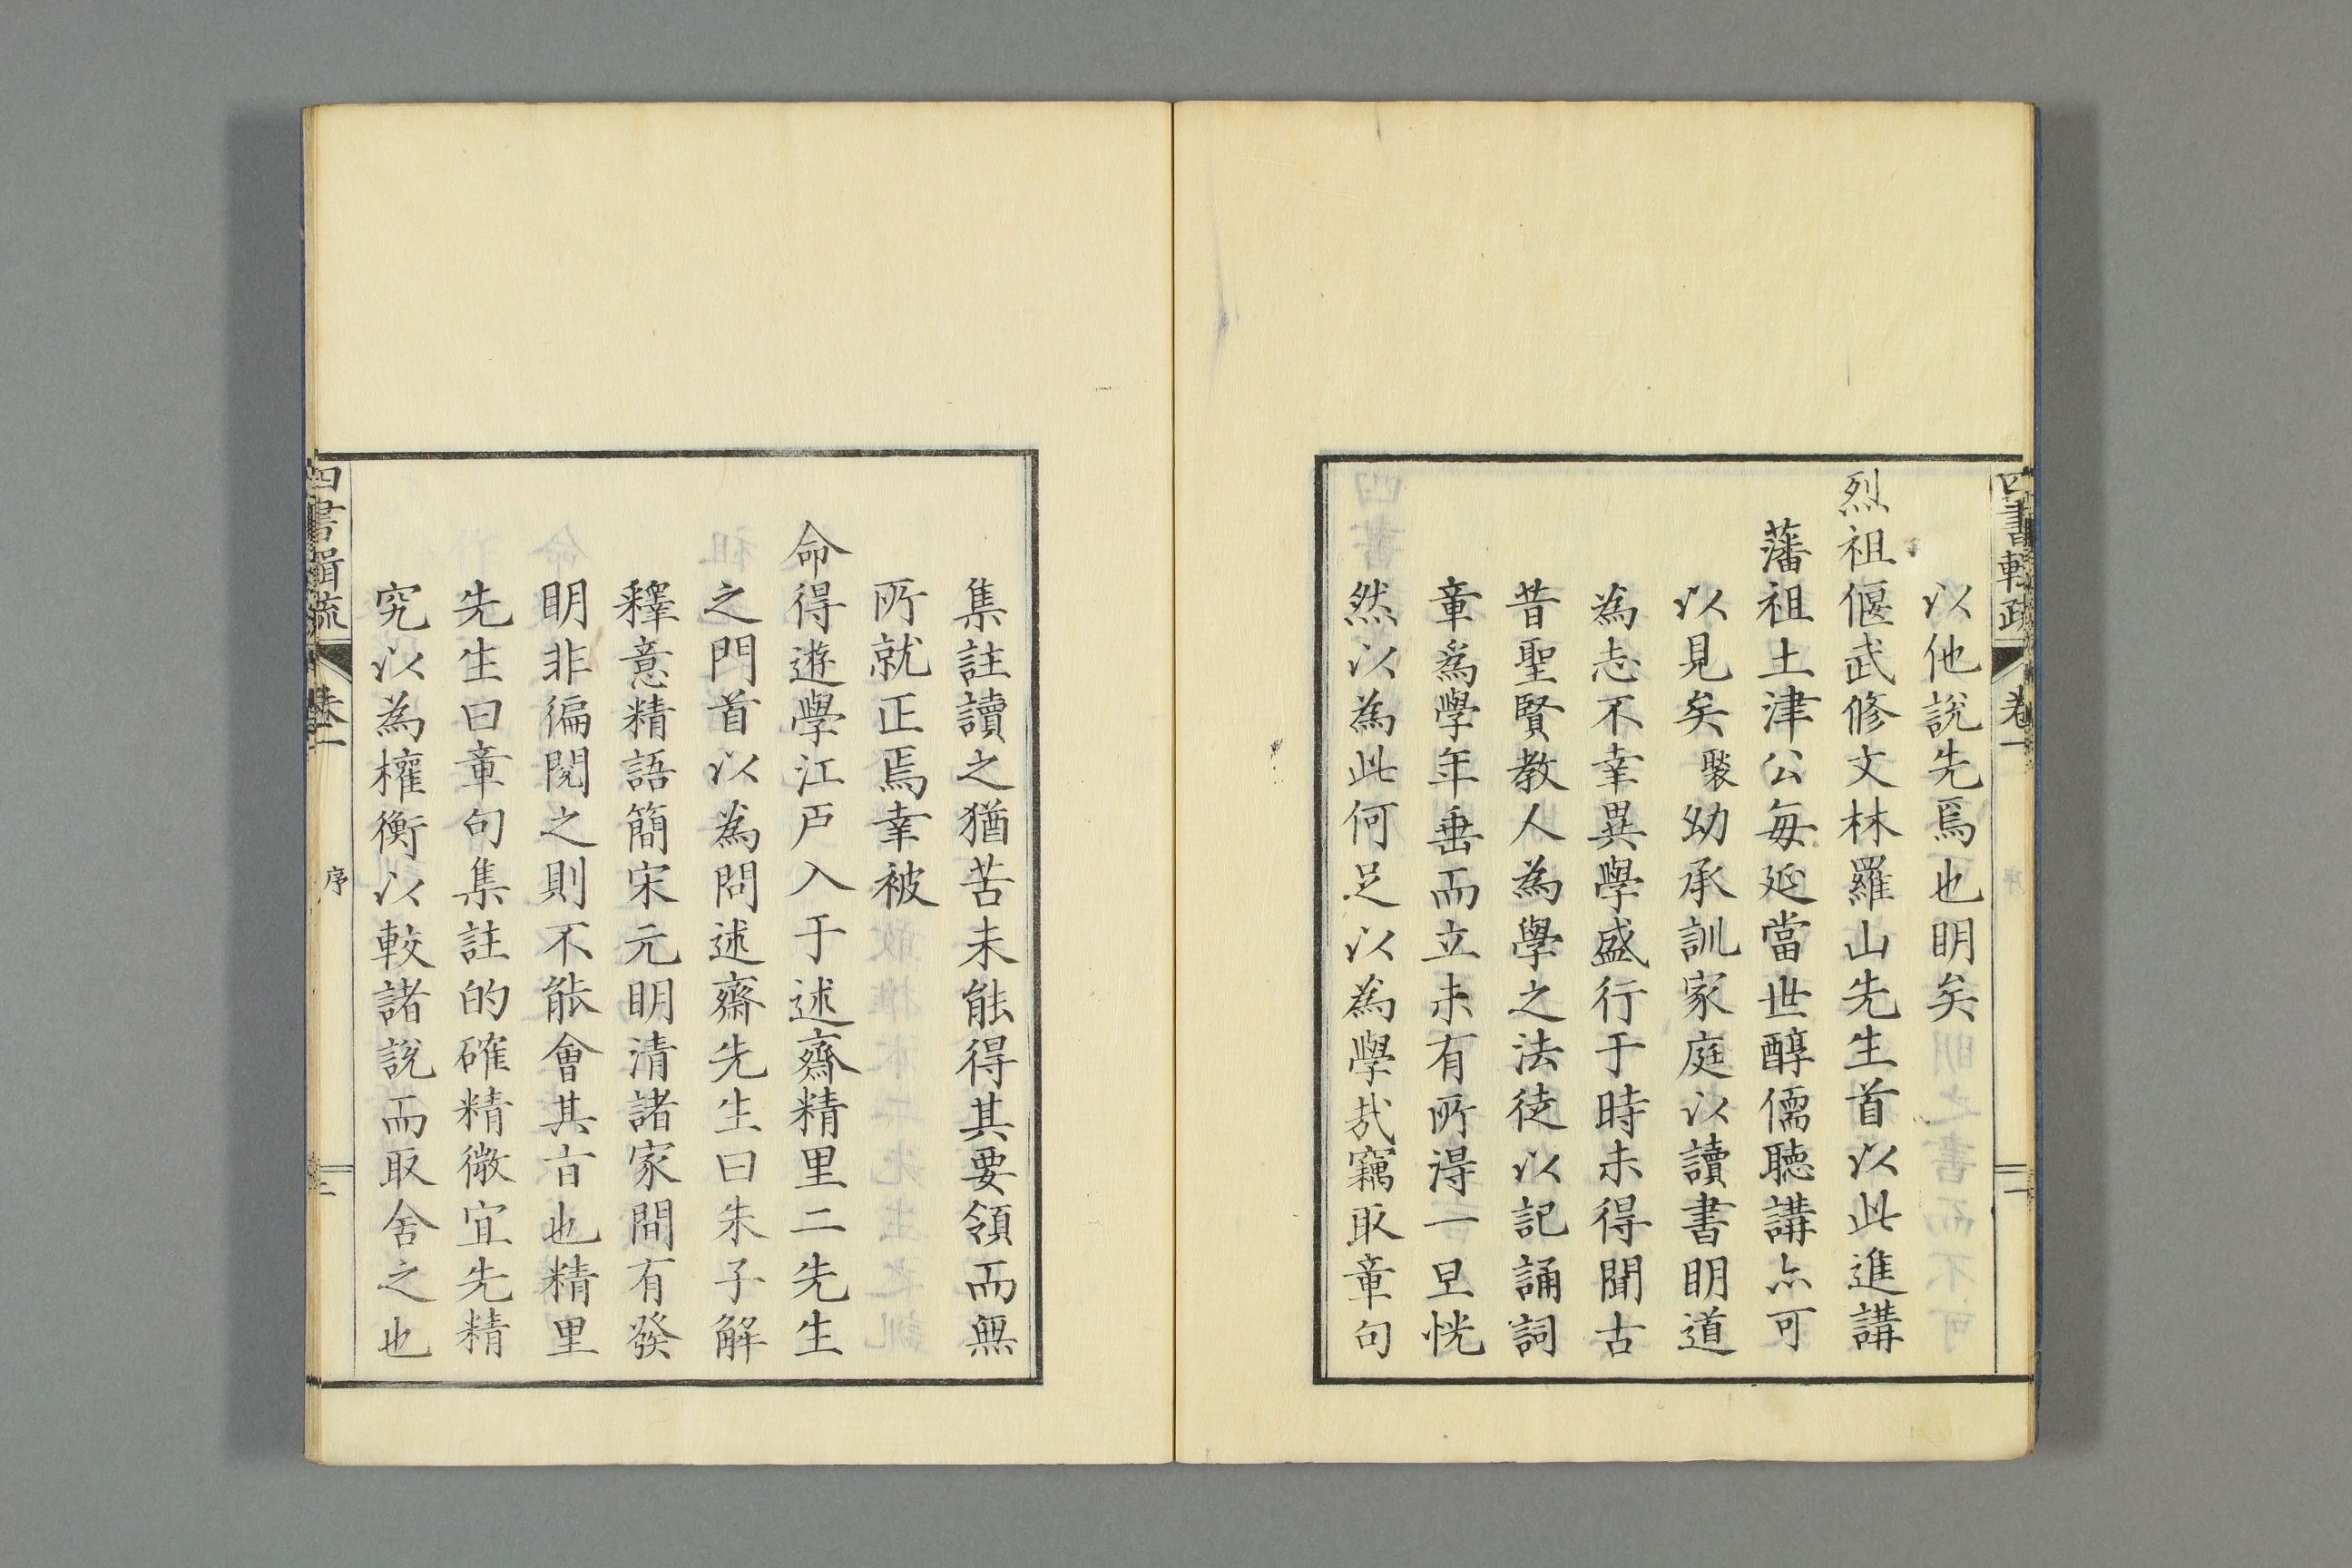 四書輯疏 卷一 序 二
以他說先焉也明矣
烈祖偃武修文林羅山先生首以此進講
藩祖土津公每延當世醇儒聽講亦可
以見矣褧幼承訓家庭以讀書明道
為志不幸異學盛行于時未得聞古
昔聖賢教人為學之法徒以記誦詞
章爲學年垂而立未有所得一旦恍
然以為此何足以為學哉竊取章句
集註讀之猶苦未能得其要領而無
所就正焉幸被
命得遊學江戸入于述齋精里二先生
之門首以為問述齋先生曰朱子解
釋意精語簡宋元明清諸家間有發
明非徧閱之則不能會其旨也精里
先生曰章句集註的確精微宜先精
究以為權衡以較諸說而取舍之也
四書輯疏 卷一 序